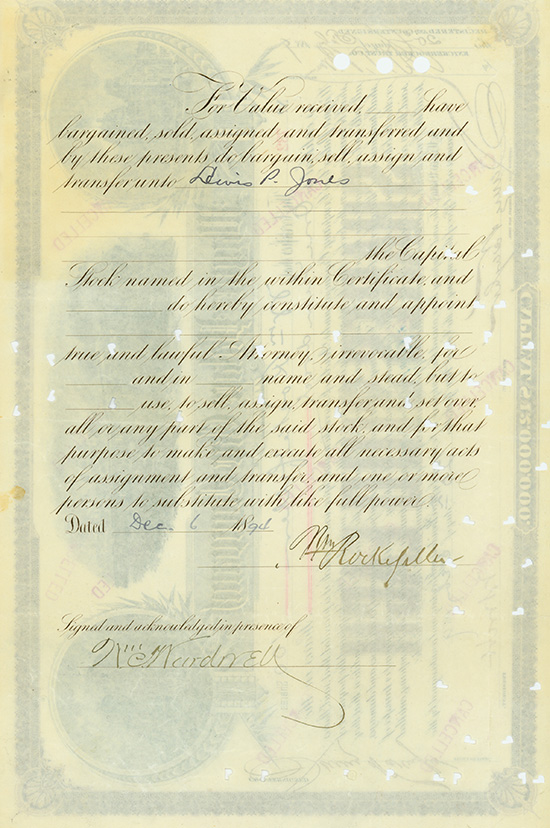 For Value received, have
bargained, sold, assigned and transferred, and
by these presents do bargain, sell, assign and
transfer unto Lewis P. Jones
the Capital
Stock named in the within Certificate, and
do hereby constitute and appoint
true and lawful Attorney, irrevocable, for
and in name and stead, but to
use, to sell, assign, transfer and set over
all or any part of the said stock, and for that
purpose to make and execute all necessary acts
of assignment and transfer, and one or more
persons to substitute with like full power.
Dated Dec. 6
Wm Rockefeller
Signed and acknowledged in presence of
CAPITAL $12,000,000.
CANCELLED
CANCELLED
CANCELLED